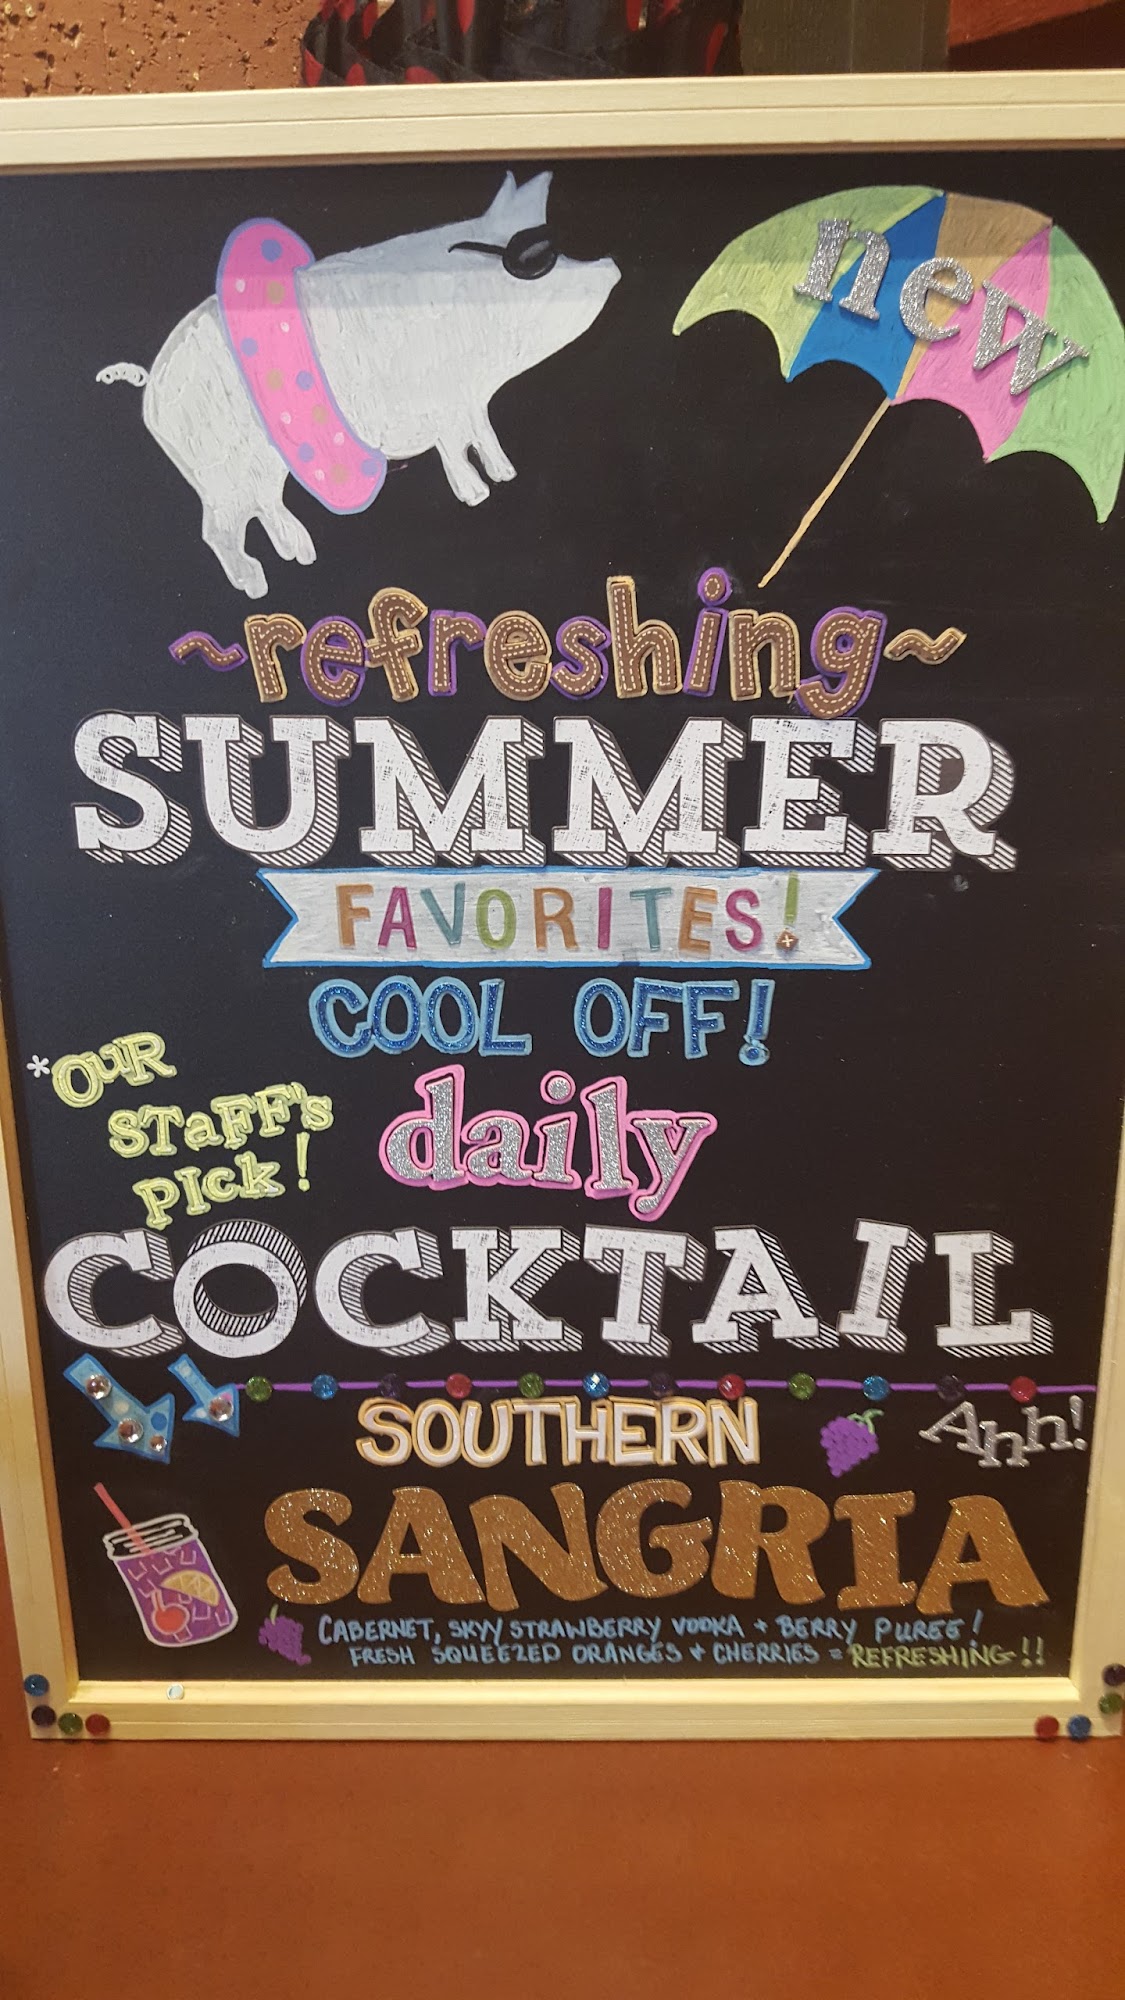 new
~refreshing~
SUMMER
FAVORITES!
COOL OFF!
*OuR
STaFF's
PIck!
daily
COCKTAIL
SOUTHERN
Ahh!
SANGRIA
CABERNET, SKYY STRAWBERRY VODKA + BERRY PUREE!
FRESH SQUEEZED ORANGES + CHERRIES = REFRESHING!!